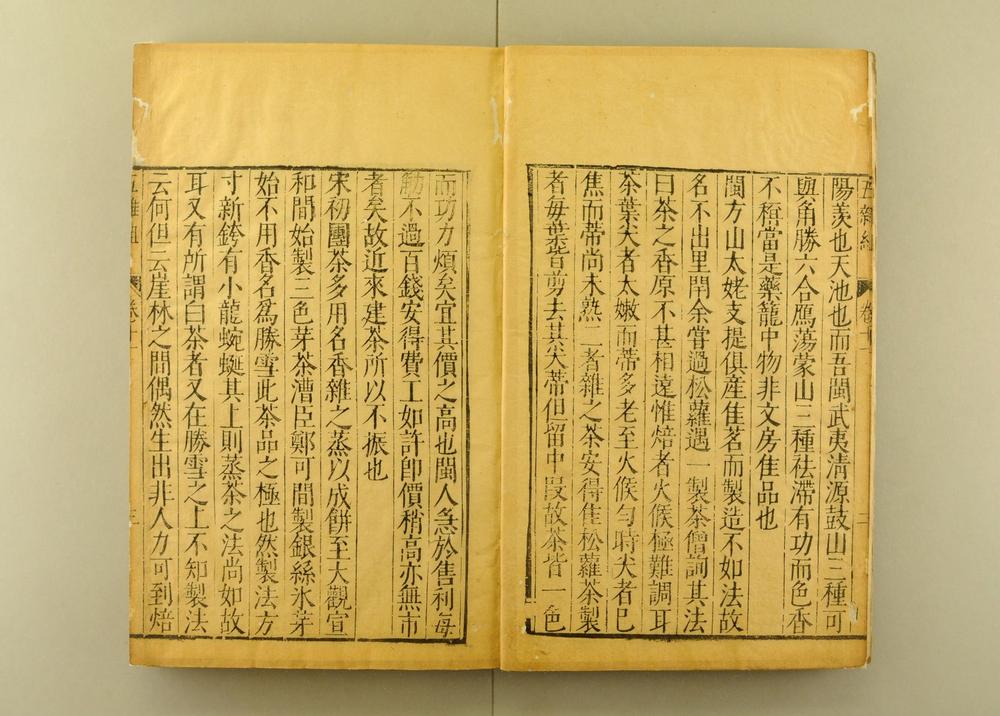 五雜組 卷十一 二
陽羨也天池也而吾閩武夷清源鼓山三種可
與角勝六合鴈蕩蒙山三種祛滯有功而色香
不稱當是藥籠中物非文房佳品也
閩方山太姥支提俱產佳茗而製造不如法故
名不出里閈余嘗過松蘿遇一製茶僧詢其法
曰茶之香原不甚相遠惟焙者火候極難調耳
茶葉尖者太嫩而蒂多老至火候勻時尖者已
焦而蒂尚未熟二者雜之茶安得佳松蘿茶製
者每葉皆剪去其尖蒂但留中段故茶皆一色
而功力煩矣宜其價之高也閩人急於售利每
觔不過百錢安得費工如許即價稍高亦無市
者矣故近來建茶所以不振也
宋初團茶多用名香雜之蒸以成餅至大觀宣
和間始製三色芽茶漕臣鄭可間製銀絲氷芽
始不用香名爲勝雪此茶品之極也然製法方
寸新銙有小龍蜿蜒其上則蒸茶之法尚如故
耳又有所謂白茶者又在勝雪之上不知製法
云何但云崖林之間偶然生出非人力可到焙
五雜組 卷十一 三